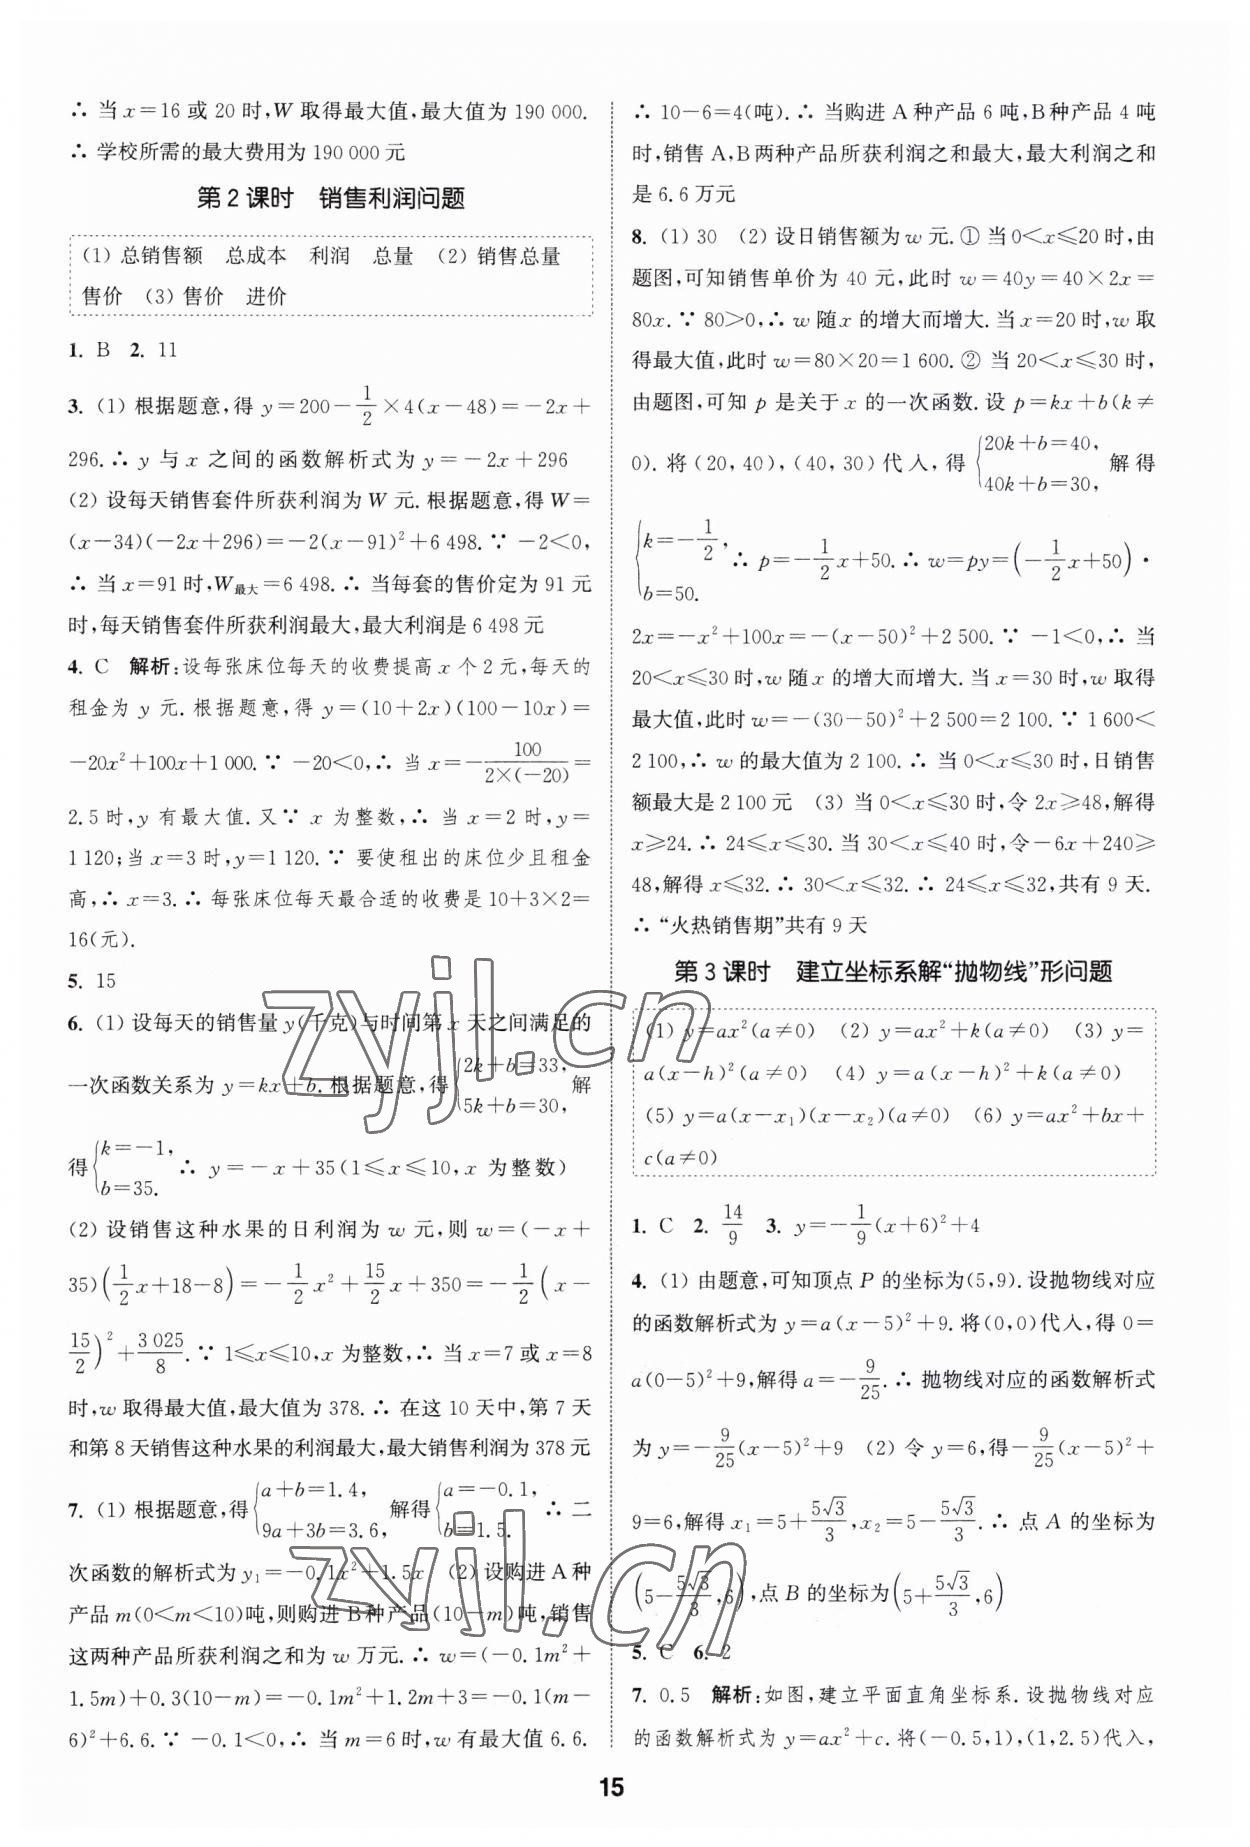 ∴ 当 x=16 或 20 时,W 取得最大值,最大值为 190 000.
∴ 学校所需的最大费用为 190 000 元
第 2 课时　销售利润问题
(1) 总销售额　总成本　利润　总量　(2) 销售总量
售价　(3) 售价　进价
1. B　2. 11
3. (1) 根据题意,得 y=200-1/2×4(x-48)=-2x+
296. ∴ y 与 x 之间的函数解析式为 y=-2x+296
(2) 设每天销售套件所获利润为 W 元. 根据题意,得 W=
(x-34)(-2x+296)=-2(x-91)²+6 498. ∵ -2<0,
∴ 当 x=91 时,W最大=6 498. ∴ 当每套的售价定为 91 元
时,每天销售套件所获利润最大,最大利润是 6 498 元
4. C　解析:设每张床位每天的收费提高 x 个 2 元,每天的
租金为 y 元. 根据题意,得 y=(10+2x)(100-10x)=
-20x²+100x+1 000. ∵ -20<0,∴ 当 x=-100/(2×(-20))=
2.5 时,y 有最大值. 又∵ x 为整数,∴ 当 x=2 时,y=
1 120;当 x=3 时,y=1 120. ∵ 要使租出的床位少且租金
高,∴ x=3. ∴ 每张床位每天最合适的收费是 10+3×2=
16(元).
5. 15
6. (1) 设每天的销售量 y(千克)与时间第 x 天之间满足的
一次函数关系为 y=kx+b. 根据题意,得{2k+b=33, 5k+b=30, 解
得{k=-1, b=35. ∴ y=-x+35(1≤x≤10,x 为整数)
(2) 设销售这种水果的日利润为 w 元,则 w=(-x+
35)(1/2x+18-8)=-1/2x²+15/2x+350=-1/2(x-
15/2)²+3 025/8. ∵ 1≤x≤10,x 为整数,∴ 当 x=7 或 x=8
时,w 取得最大值,最大值为 378. ∴ 在这 10 天中,第 7 天
和第 8 天销售这种水果的利润最大,最大销售利润为 378 元
7. (1) 根据题意,得{a+b=1.4, 9a+3b=3.6, 解得{a=-0.1, b=1.5. ∴ 二
次函数的解析式为 y₁=-0.1x²+1.5x　(2) 设购进 A 种
产品 m(0<m<10)吨,则购进 B 种产品(10-m)吨,销售
这两种产品所获利润之和为 w 万元. ∴ w=(-0.1m²+
1.5m)+0.3(10-m)=-0.1m²+1.2m+3=-0.1(m-
6)²+6.6. ∵ -0.1<0,∴ 当 m=6 时,w 有最大值 6.6.
∴ 10-6=4(吨). ∴ 当购进 A 种产品 6 吨,B 种产品 4 吨
时,销售 A,B 两种产品所获利润之和最大,最大利润之和
是 6.6 万元
8. (1) 30　(2) 设日销售额为 w 元. ① 当 0<x≤20 时,由
题图,可知销售单价为 40 元,此时 w=40y=40×2x=
80x. ∵ 80>0,∴ w 随 x 的增大而增大. 当 x=20 时,w 取
得最大值,此时 w=80×20=1 600. ② 当 20<x≤30 时,
由题图,可知 p 是关于 x 的一次函数. 设 p=kx+b(k≠
0). 将 (20,40),(40,30) 代入,得 {20k+b=40, 40k+b=30, 解得
{k=-1/2, b=50. ∴ p=-1/2x+50. ∴ w=py=(-1/2x+50)·
2x=-x²+100x=-(x-50)²+2 500. ∵ -1<0,∴ 当
20<x≤30 时,w 随 x 的增大而增大. 当 x=30 时,w 取得
最大值,此时 w=-(30-50)²+2 500=2 100. ∵ 1 600<
2 100,∴ w 的最大值为 2 100. ∴ 当 0<x≤30 时,日销售
额最大是 2 100 元　(3) 当 0<x≤30 时,令 2x≥48,解得
x≥24. ∴ 24≤x≤30. 当 30<x≤40 时,令-6x+240≥
48,解得 x≤32. ∴ 30<x≤32. ∴ 24≤x≤32,共有 9 天.
∴ “火热销售期”共有 9 天
第 3 课时　建立坐标系解“抛物线”形问题
(1) y=ax²(a≠0)　(2) y=ax²+k(a≠0)　(3) y=
a(x-h)²(a≠0)　(4) y=a(x-h)²+k(a≠0)
(5) y=a(x-x₁)(x-x₂)(a≠0)　(6) y=ax²+bx+
c(a≠0)
1. C　2. 14/9　3. y=-1/9(x+6)²+4
4. (1) 由题意,可知顶点 P 的坐标为(5,9). 设抛物线对应
的函数解析式为 y=a(x-5)²+9. 将(0,0)代入,得 0=
a(0-5)²+9,解得 a=-9/25. ∴ 抛物线对应的函数解析式
为 y=-9/25(x-5)²+9　(2) 令 y=6,得-9/25(x-5)²+
9=6,解得 x₁=5+5√3/3,x₂=5-5√3/3. ∴ 点 A 的坐标为
(5-5√3/3,6),点 B 的坐标为(5+5√3/3,6)
5. C　6. 2
7. 0.5　解析:如图,建立平面直角坐标系. 设抛物线对应
的函数解析式为 y=ax²+c. 将(-0.5,1),(1,2.5)代入,
15
zyjl.cn
zyjl.cn